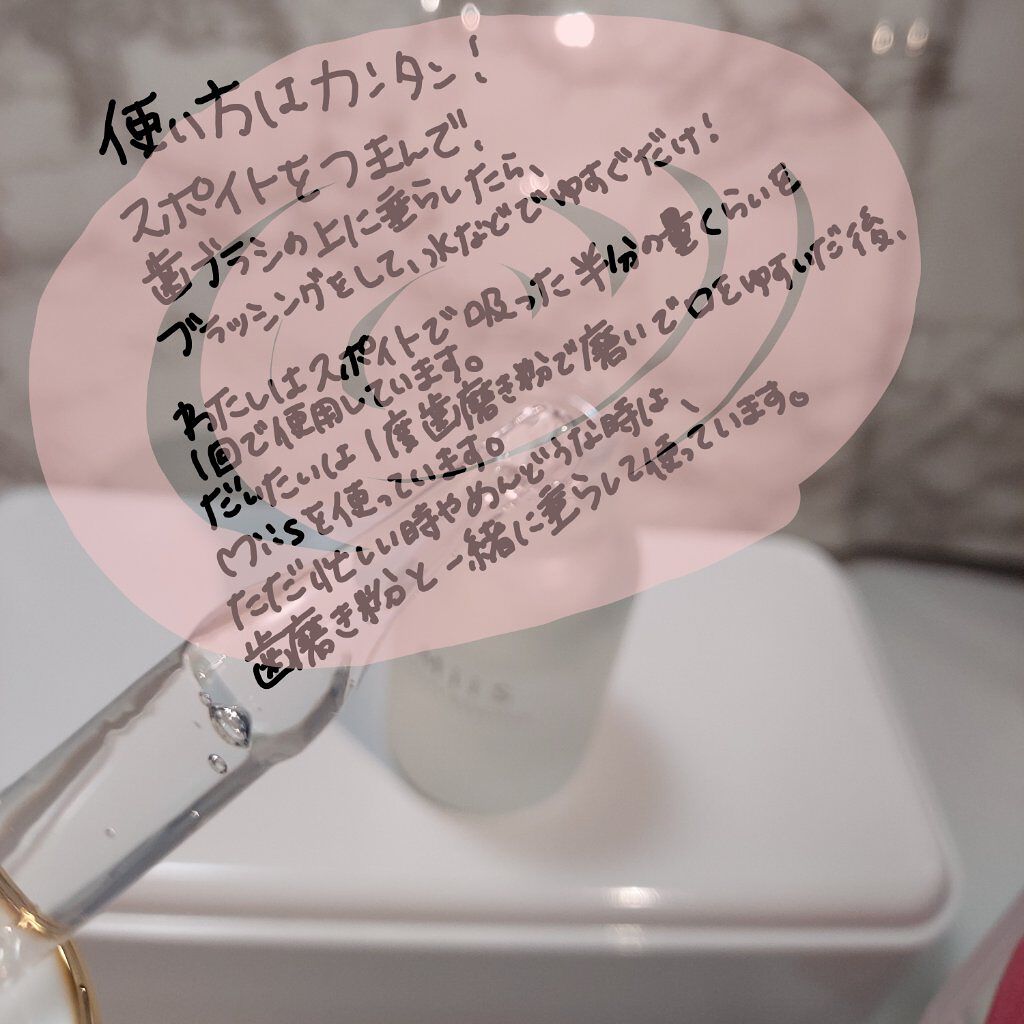 使い方はカンタン!
スポイトをつまんで、
歯ブラシの上に垂らしたら、
ブラッシングをして、水などでゆすぐだけ!
わたしはスポイトで吸った半分の量くらいを
1回で使用しています。
だいたいは1度歯磨き粉で磨いで口をゆすいだ後、
Miisを使っています。
ただ忙しい時やめんどうな時は、
歯磨き粉と一緒に垂らして使っています。
Miis